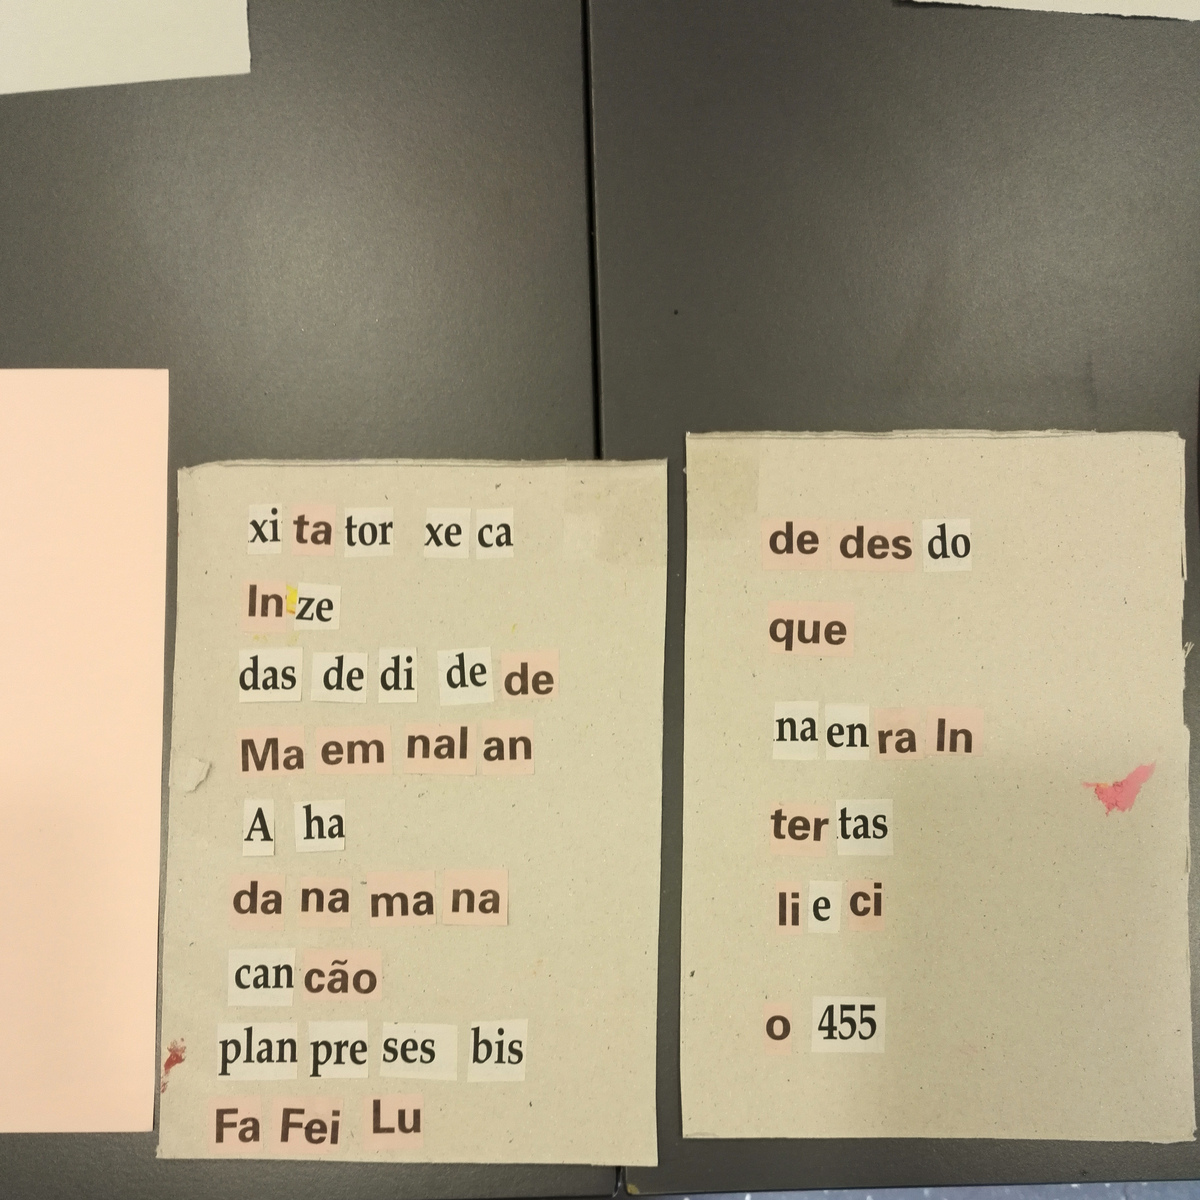 xi ta tor xe ca
In ze
das de di de de
Ma em nal an
A ha
da na ma na
can cão
plan pre ses bis
Fa Fei Lu
de des do
que
na en ra In
ter tas
li e ci
o 455